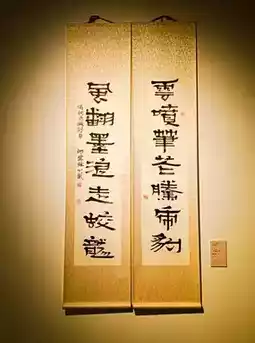 雲噴筆花騰虎豹
風翻墨浪走蛟龍